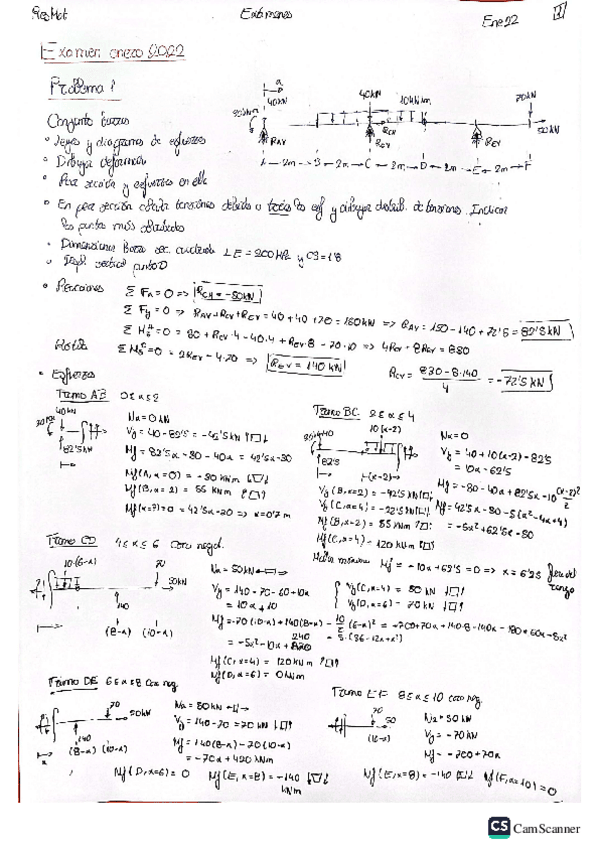 ResMat Exámenes Ene 22 1
Examen enero 2022
Problema 1
Conjunto barras
• Leyes y diagramas de esfuerzos
• Dibujar deformada
• Peor sección y esfuerzos en ella
• En peor sección calcular tensiones debido a todos los esf y dibujar distrib. de tensiones. Indicar
los puntos más
• Dimensionar barra sec. cuadrada LE = 200 MPa y CS = 1'8
• Despl. vertical punto D
40 kN 40 kN 10 kN/m 70 kN
50 kN
RAV RCH RCV REV
2m B 2m C 2m D 2m E 2m F
• Reacciones Σ Fx = 0 => RCH = -50 kN
Σ Fy = 0 => RAV + RCV + REV = 40 + 40 + 70 = 150 kN => RAV = 150 - 140 + 72'5 = 82'5 kN
Rótula Σ = 0 = 2REV - 4·70 => REV = 140 kN
RCV = 830 - 8·140 / 4 = -72'5 kN
• Esfuerzos
Tramo AB 0≤x≤2
40 kN
82'5
Nx = 0 kN
Vy = 40 - 82'5 = -42'5 kN
Mf = 82'5x - 30 - 40x = 42'5x - 30
Mf (A, x=0) = -30 kNm
Mf (B, x=2) = 55 kNm
Mf (x=?) = 0 = 42'5x - 30 => x = 0'7 m
Tramo BC 2≤x≤4
10(x-2)
82'5
(x-2)
Nx = 0
Vy = 40 + 10(x-2) - 82'5
= 10x - 62'5
Mf = -30 - 40x + 82'5x - 10 (x-2)²/2
Mf = 42'5x - 30 - 5(x² - 4x + 4)
= -5x² + 62'5x - 50
Vy (B, x=2) = -42'5 kN
Vy (C, x=4) = -22'5 kN
Mf (B, x=2) = 55 kNm
Mf (C, x=4) = 120 kNm
= -10x + 62'5 = 0 => x = 6'25 fuera del
rango
Tramo CD 4≤x≤6 Cara negat.
10·(6-x) 70
50 kN
140
(8-x) (10-x)
Nx = 50 kN
Vy = 140 - 70 - 60 + 10x
= 10x + 10
Vy (C, x=4) = 50 kN
Vy (D, x=6) = 70 kN
Mf = -70·(10-x) + 140(8-x) - 10/2 (6-x)² = -700 + 70x + 140·8 - 140x - 180 + 60x - 5x²
= -5x² - 10x + 240
Mf (C, x=4) = 120 kNm
Mf (D, x=6) = 0 kNm
Tramo DE 6≤x≤8 Cara neg
70
50 kN
140
(8-x) (10-x)
Nx = 50 kN
Vy = 140 - 70 = 70 kN
Mf = 140(8-x) - 70(10-x)
= -70x + 420 kNm
Mf (D, x=6) = 0 Mf (E, x=8) = -140
kNm
Tramo EF 8≤x≤10 cara neg.
70
50
(10-x)
Nx = 50 kN
Vy = -70 kN
Mf = -700 + 70x
Mf (E, x=8) = -140 Mf (F, x=10) = 0
CS CamScanner